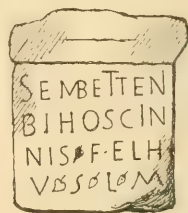 SEMBETTEN
BIHOSCIN
NIS·F·ELH
V·S·L·M